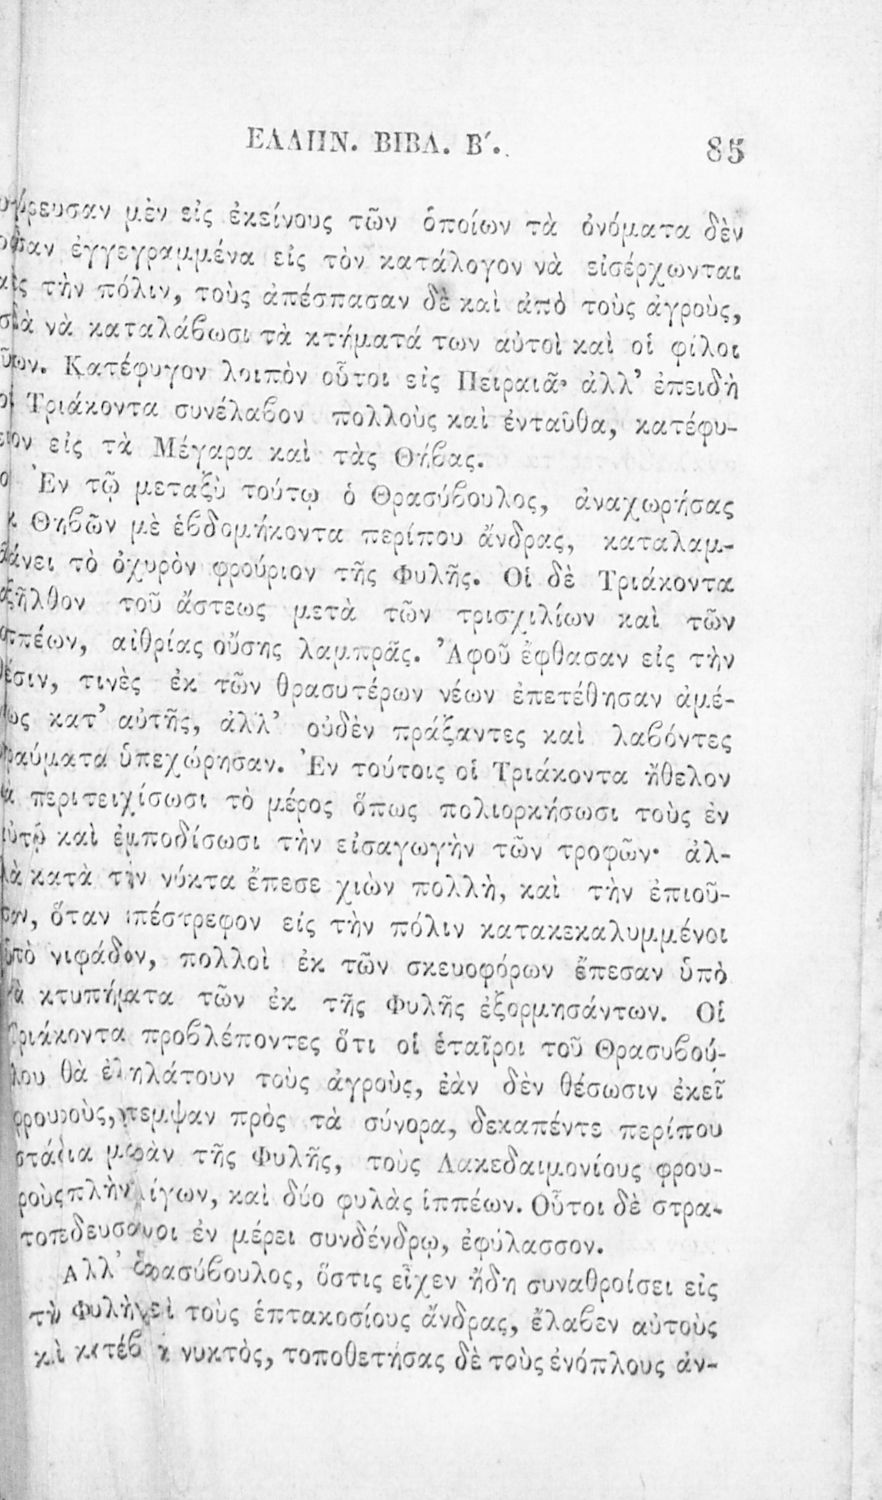 ΕΛΛΗΝ. ΒΙΒΛ. Β΄. 85
μὲν εἰς ἐκείνους τῶν ὁποίων τὰ ὀνόματα δὲν
ἐγγεγραμμένα εἰς τὸν κατάλογον νὰ εἰσέρχωνται
τὴν πόλιν, τοὺς ἀπέσπασαν δὲ καὶ ἀπὸ τοὺς ἀγροὺς,
νὰ καταλάβωσι τὰ κτήματά των αὐτοὶ καὶ οἱ φίλοι
Κατέφυγον λοιπὸν οὗτοι εἰς Πειραιᾶ· ἀλλ’ ἐπειδὴ
Τριάκοντα συνέλαβον πολλοὺς καὶ ἐνταῦθα, κατέφυ-
εἰς τὰ Μέγαρα καὶ τὰς Θήβας.
Ἐν τῷ μεταξὺ τούτῳ ὁ Θρασύβουλος, ἀναχωρήσας
Θηβῶν μὲ ἑβδομήκοντα περίπου ἄνδρας, καταλαμ-
βάνει τὸ ὀχυρὸν φρούριον τῆς Φυλῆς. Οἱ δὲ Τριάκοντα
ἐξῆλθον τοῦ ἄστεως μετὰ τῶν τρισχιλίων καὶ τῶν
ἱππέων, αἰθρίας οὔσης λαμπρᾶς. Ἀφοῦ ἔφθασαν εἰς τὴν
θέσιν, τινὲς ἐκ τῶν θρασυτέρων νέων ἐπετέθησαν ἀμέ-
σως κατ’ αὐτῆς, ἀλλ’ οὐδὲν πράξαντες καὶ λαβόντες
τραύματα ὑπεχώρησαν. Ἐν τούτοις οἱ Τριάκοντα ἤθελον
νὰ περιτειχίσωσι τὸ μέρος ὅπως πολιορκήσωσι τοὺς ἐν
αὐτῷ καὶ ἐμποδίσωσι τὴν εἰσαγωγὴν τῶν τροφῶν· ἀλ-
λὰ κατὰ τὴν νύκτα ἔπεσε χιὼν πολλὴ, καὶ τὴν ἐπιοῦ-
σαν, ὅταν ἐπέστρεφον εἰς τὴν πόλιν κατακεκαλυμμένοι
ὑπὸ νιφάδων, πολλοὶ ἐκ τῶν σκευοφόρων ἔπεσαν ὑπὸ
τὰ κτυπήματα τῶν ἐκ τῆς Φυλῆς ἐξορμησάντων. Οἱ
Τριάκοντα προβλέποντες ὅτι οἱ ἑταῖροι τοῦ Θρασυβού-
λου θὰ ἐληλάτουν τοὺς ἀγροὺς, ἐὰν δὲν θέσωσιν ἐκεῖ
φρουροὺς, πρὸς τὰ σύνορα, δεκαπέντε περίπου
στάδια μακρὰν τῆς Φυλῆς, τοὺς Λακεδαιμονίους φρου-
ροὺς πλὴν ὀλίγων, καὶ δύο φυλὰς ἱππέων. Οὗτοι δὲ στρα-
τοπεδευσανοι ἐν μέρει συνδένδρῳ, ἐφύλασσον.
Ἀλλ’ ὁ Θρασύβουλος, ὅστις εἶχεν ἤδη συναθροίσει εἰς
τὴν Φυλὴν τοὺς ἑπτακοσίους ἄνδρας, ἔλαβεν αὐτοὺς
καὶ νυκτὸς, τοποθετήσας δὲ τοὺς ἐνόπλους ἀν-